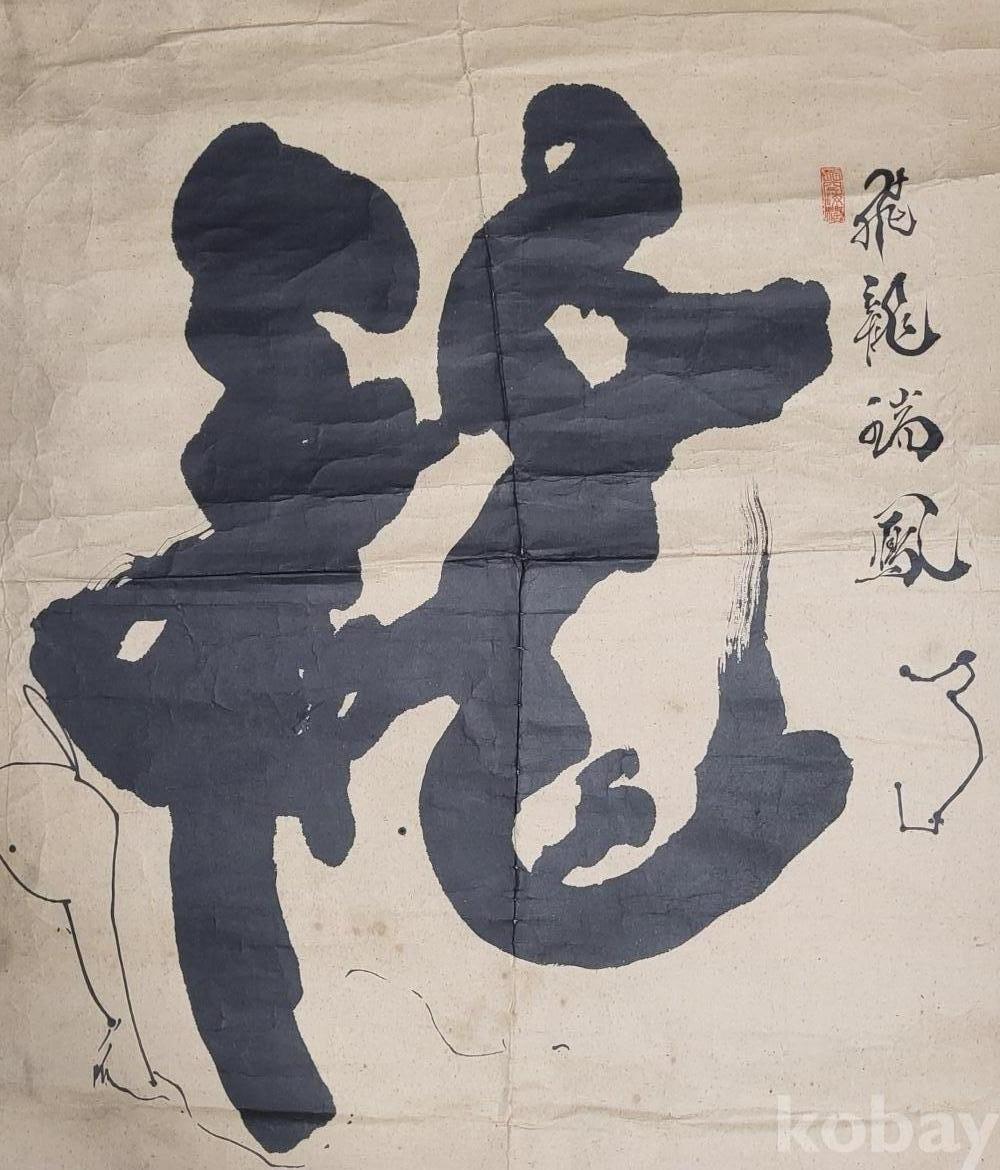 飛龍瑞鳳
龍
kobay